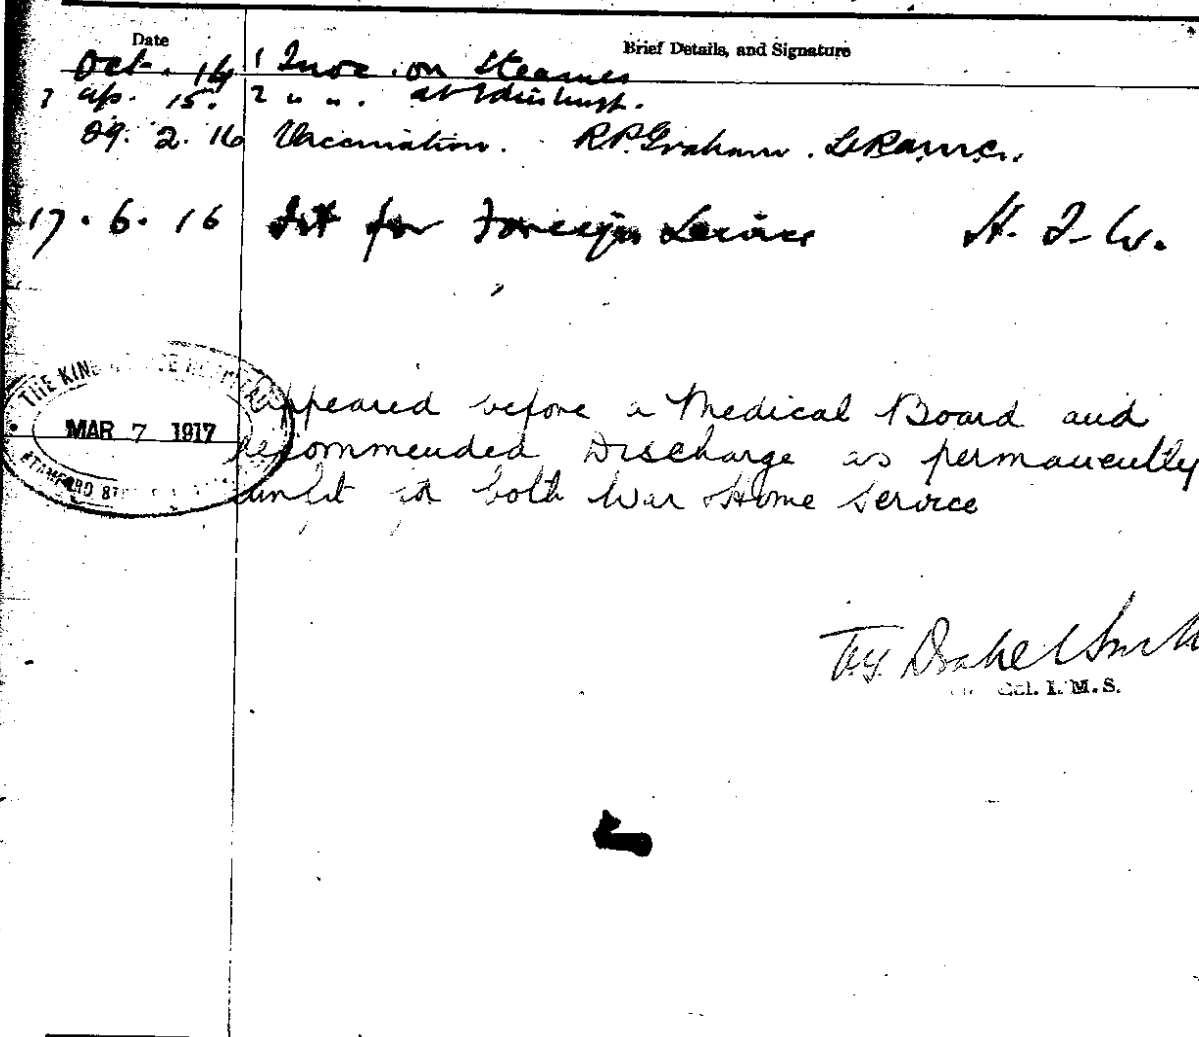 Date Brief Details, and Signature
Oct. 14 1 Inoc. on Steamer
? Ap. 15. 2 " " . at Edinburgh.
29. 2. 16 Vaccination. R.P. Graham. Lt R.a.m.c.
17. 6. 16 Fit for Foreign Service H. J. W.
THE KING
MAR 7 1917
STAMFORD
Appeared before a Medical Board and
recommended Discharge as permanently
unfit for both War & Home Service
Drake Smith
Col. I. M. S.